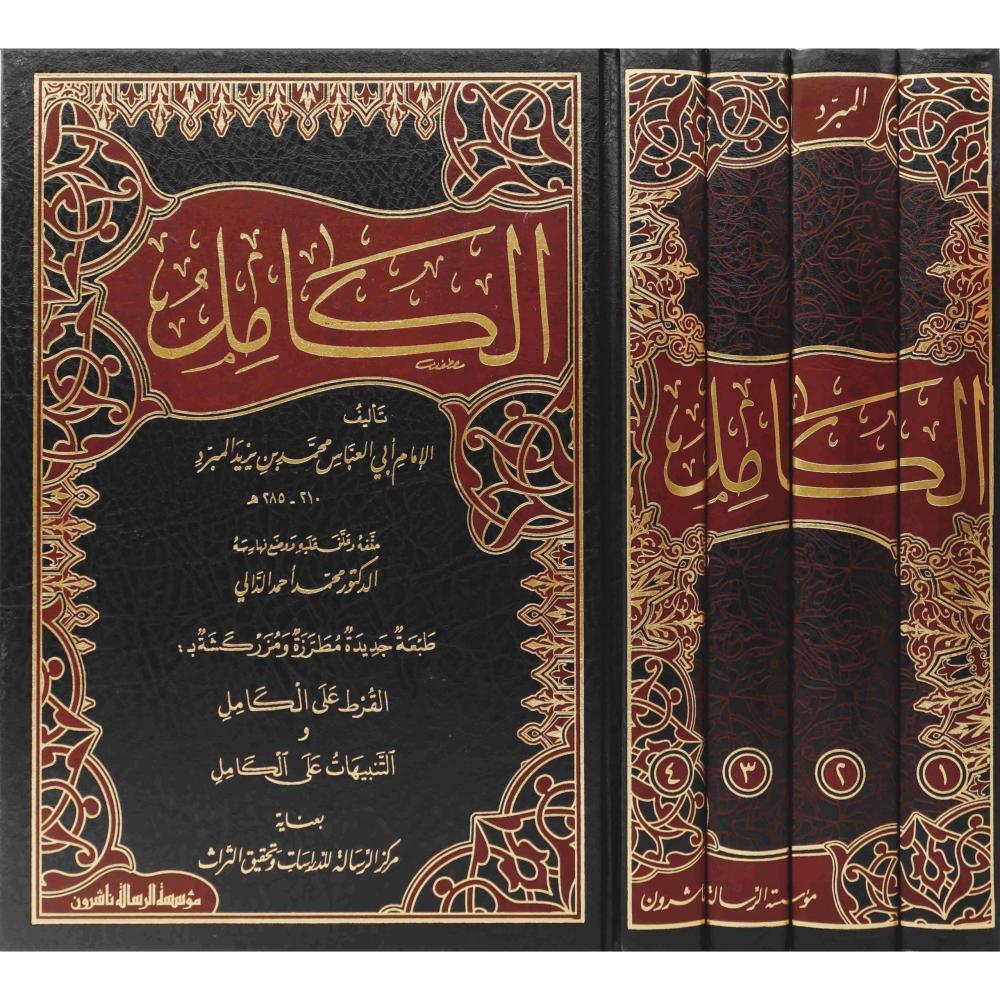 الكَامِلُ
تَأليفُ
الإمَامِ أبي العبَّاسِ محمَّد بن يزيد المبرّد
٢١٠ - ٢٨٥ هـ
حقّقهُ وعلّق عليه ووضع فهارسهُ
الدكتور محمّد أحمد الدّالي
طَبْعَةٌ جَدِيدَةٌ مُطَرَّزَةٌ وَمُزَرْكَشَةٌ بـ :
القُرْطِ عَلَى الْكَامِلِ
و
التَّنبيهَاتُ عَلى الْكَامِلِ
بعناية
مركز الرسالة للدراسات وتحقيق التراث
مؤسسة الرسالة ناشرون
المبرّد
الكَامِل
٤ ٣ ٢ ١
مؤسسة الرسالة ناشرون